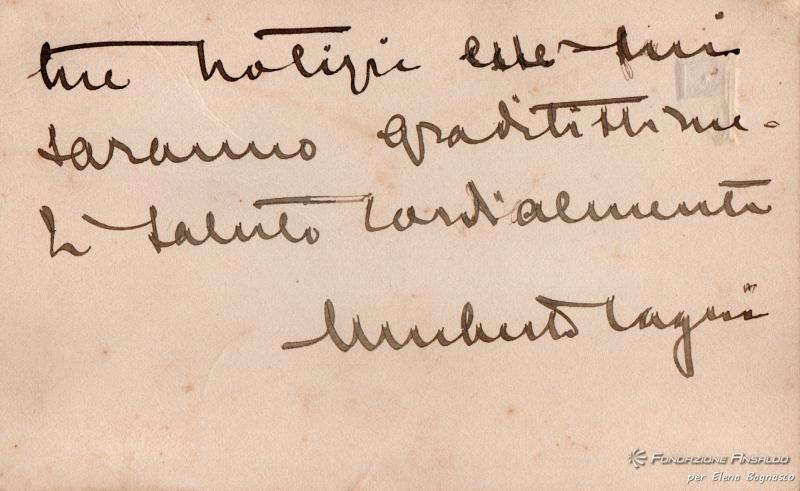 tue notizie esse mi
saranno graditissime.
Ti saluto cordialmente
Umberto Cagni
FONDAZIONE ANSALDO
per Elena Bagnasco